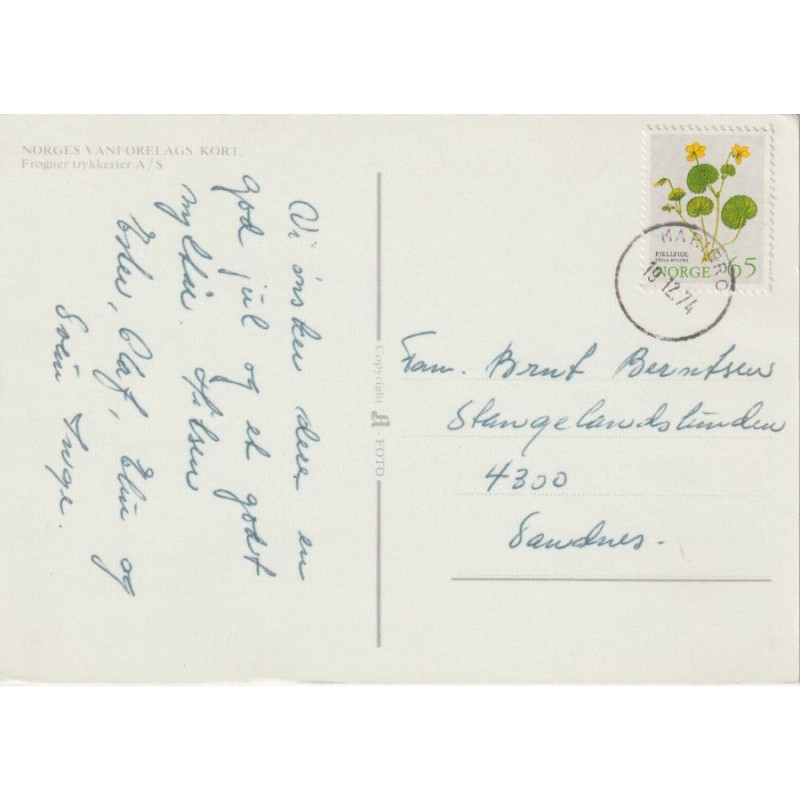 NORGES VANFØRELAGS KORT.
Frogner trykkerier A/S
Vi ønsker dere en
god jul og et godt
nyttår. Hilsen
Ester, Olaf, Elin og
Svein Inge.
Copyright - FOTO
FJELLFIOL
VIOLA BIFLORA
NORGE 65
19.12.74
Fam. Brnt Berntsen
Stangelandslunden
4300
Sandnes.